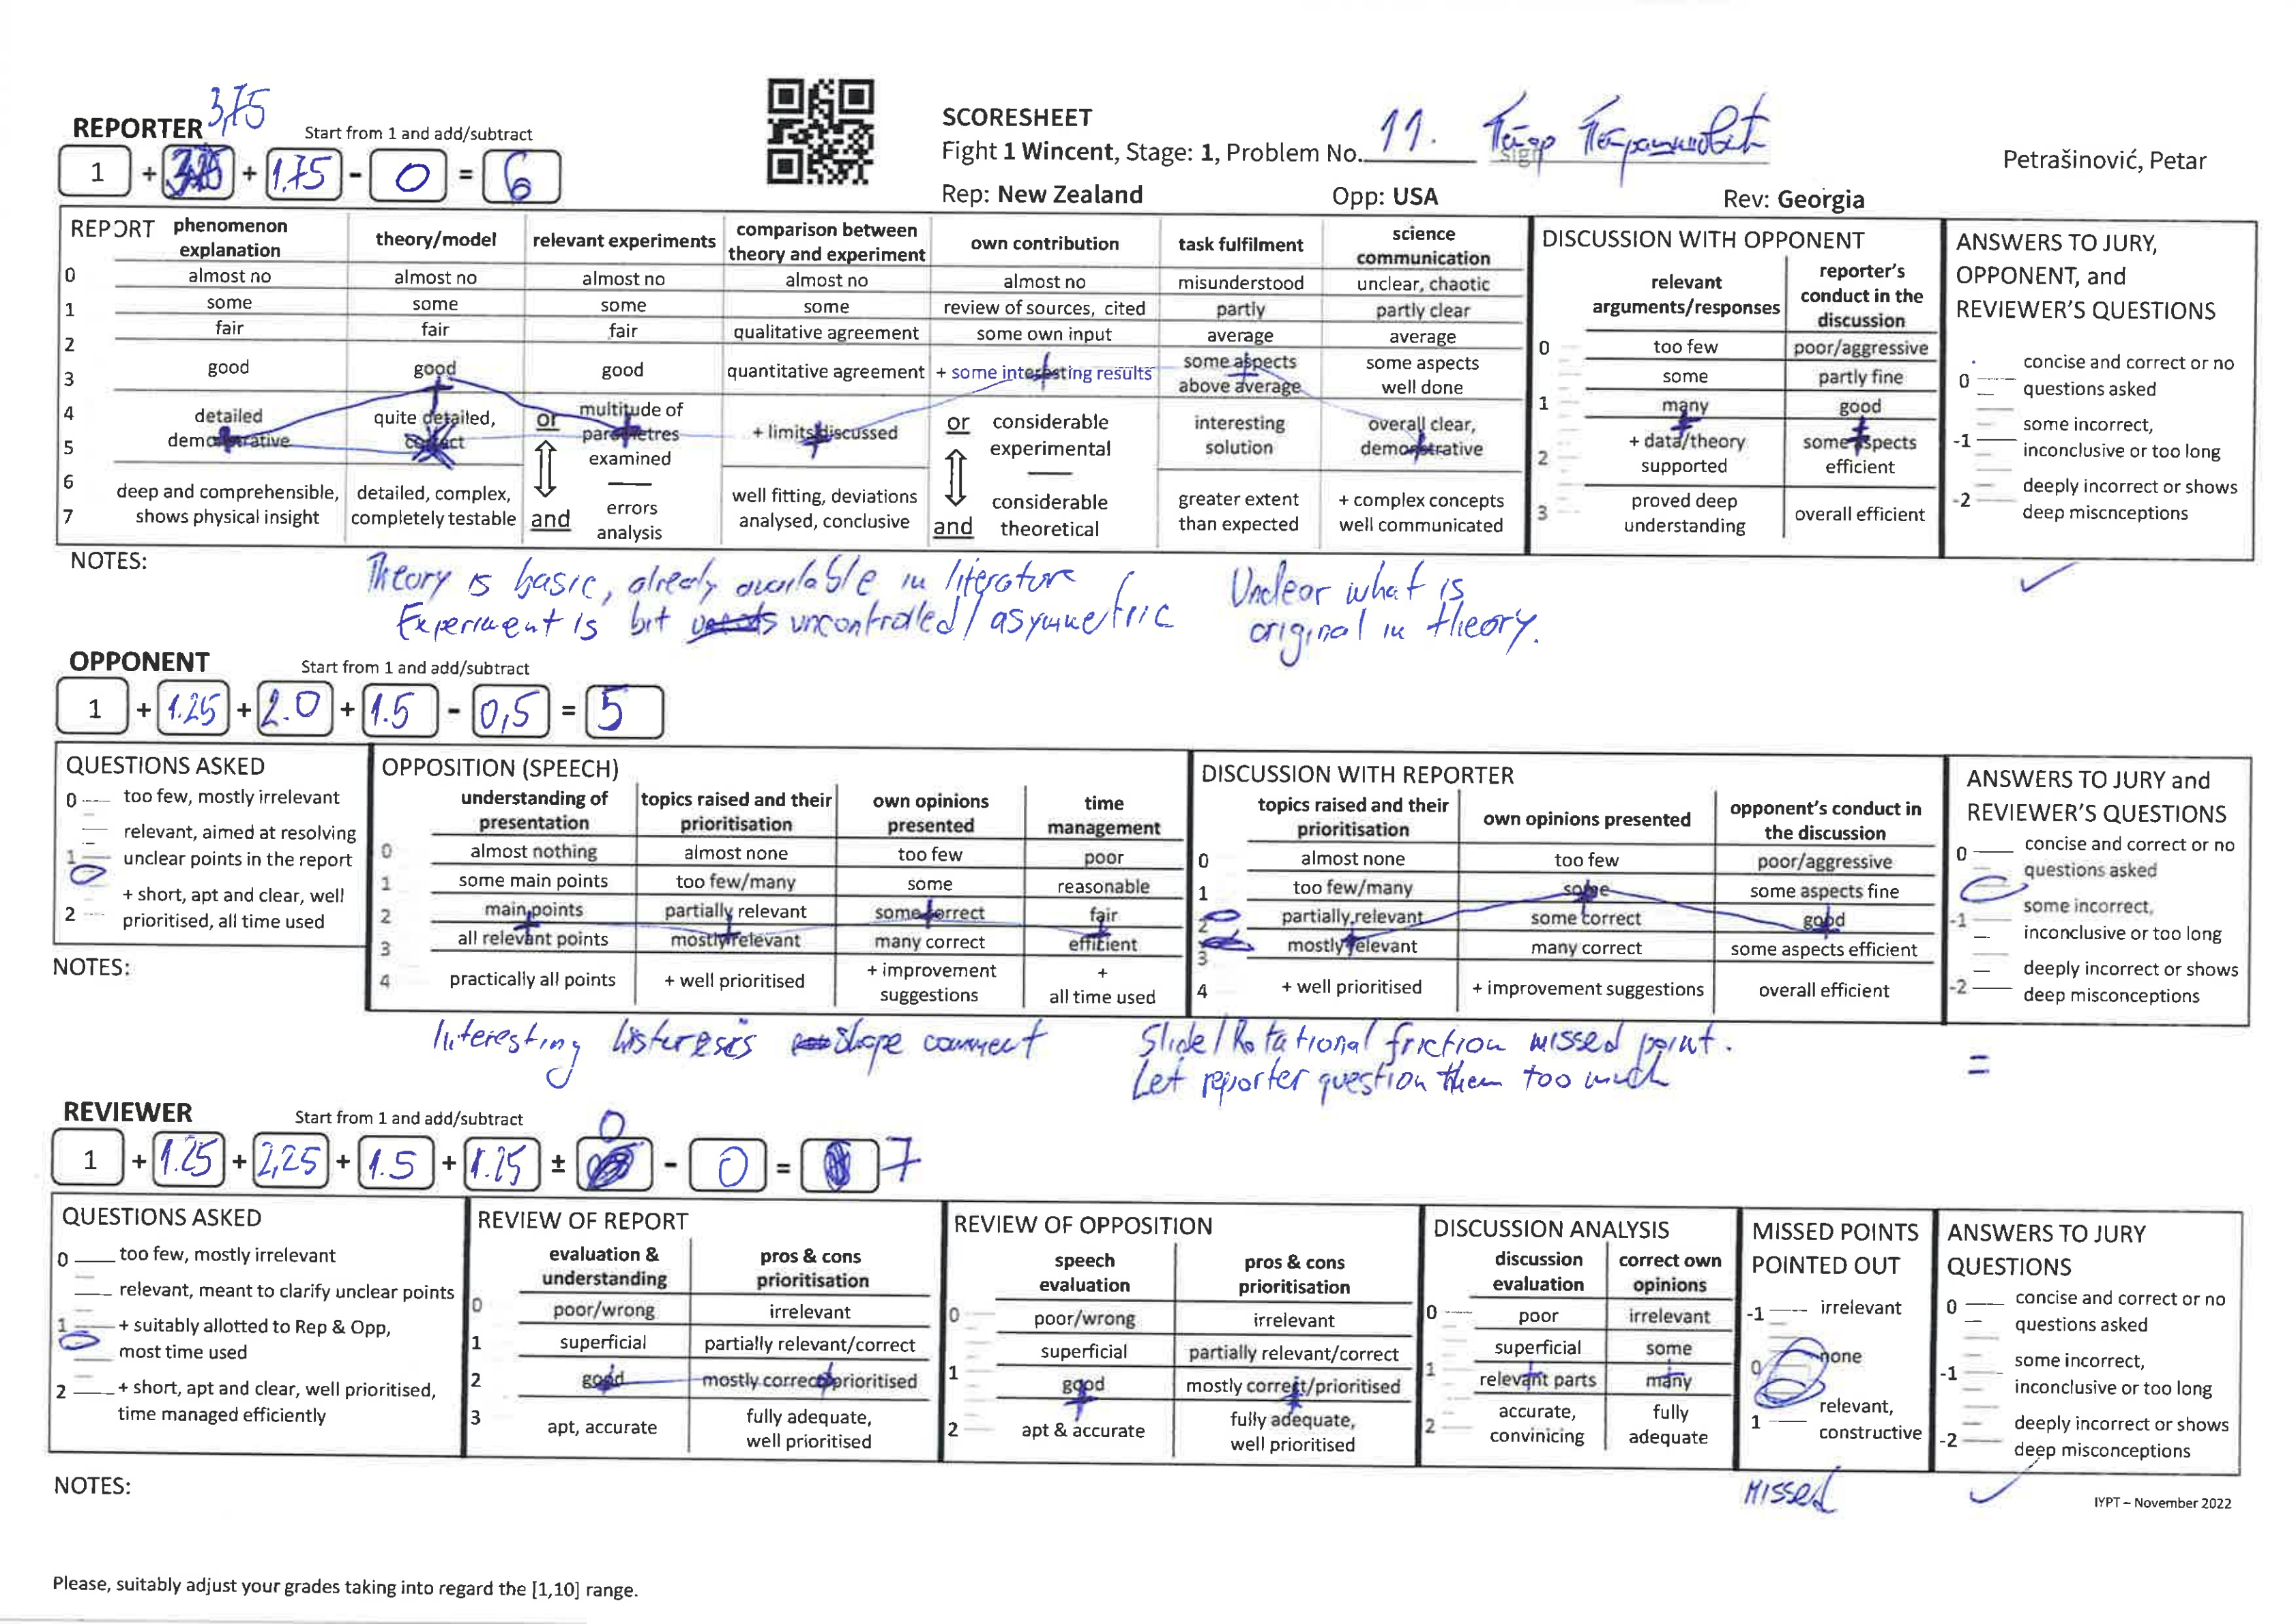 3,75
REPORTER Start from 1 and add/subtract
1 + + 1.75 - 0 = 6
SCORESHEET
Fight 1 Wincent, Stage: 1, Problem No. 11.
sign
Petrašinović, Petar
Rep: New Zealand Opp: USA Rev: Georgia
REPORT phenomenon explanation theory/model relevant experiments comparison between theory and experiment own contribution task fulfilment science communication
0 almost no almost no almost no almost no almost no misunderstood unclear, chaotic
1 some some some some review of sources, cited partly partly clear
2 fair fair fair qualitative agreement some own input average average
3 good good good quantitative agreement + some interesting results some aspects above average some aspects well done
4 5 detailed demonstrative quite detailed, correct or multitude of parametres examined + limits discussed or considerable experimental interesting solution overall clear, demonstrative
6 7 deep and comprehensible, shows physical insight detailed, complex, completely testable and errors analysis well fitting, deviations analysed, conclusive and considerable theoretical greater extent than expected + complex concepts well communicated
DISCUSSION WITH OPPONENT
relevant arguments/responses reporter's conduct in the discussion
0 too few poor/aggressive
some partly fine
1 many good
2 + data/theory supported some aspects efficient
3 proved deep understanding overall efficient
ANSWERS TO JURY, OPPONENT, and REVIEWER'S QUESTIONS
0 concise and correct or no questions asked
-1 some incorrect, inconclusive or too long
-2 deeply incorrect or shows deep miscnceptions
NOTES:
Theory is basic, alredy available in literature
Experiment is bit uncontrolled/asymmetric
Unclear what is
original in theory.
OPPONENT Start from 1 and add/subtract
1 + 1.25 + 2.0 + 1.5 - 0,5 = 5
QUESTIONS ASKED
0 too few, mostly irrelevant
relevant, aimed at resolving
1 unclear points in the report
+ short, apt and clear, well
2 prioritised, all time used
NOTES:
OPPOSITION (SPEECH)
understanding of presentation topics raised and their prioritisation own opinions presented time management
0 almost nothing almost none too few poor
1 some main points too few/many some reasonable
2 main points partially relevant some correct fair
3 all relevant points mostly relevant many correct efficient
4 practically all points + well prioritised + improvement suggestions + all time used
DISCUSSION WITH REPORTER
topics raised and their prioritisation own opinions presented opponent's conduct in the discussion
0 almost none too few poor/aggressive
1 too few/many some some aspects fine
2 partially relevant some correct good
3 mostly relevant many correct some aspects efficient
4 + well prioritised + improvement suggestions overall efficient
ANSWERS TO JURY and REVIEWER'S QUESTIONS
0 concise and correct or no questions asked
-1 some incorrect, inconclusive or too long
-2 deeply incorrect or shows deep misconceptions
Interesting histeresis shape comment
Slide/Rotational friction missed point.
Let reporter question them too much
=
REVIEWER Start from 1 and add/subtract
0
1 + 1.25 + 2,25 + 1.5 + 1.25 ± - 0 = 7
QUESTIONS ASKED
0 too few, mostly irrelevant
relevant, meant to clarify unclear points
1 + suitably allotted to Rep & Opp,
most time used
2 + short, apt and clear, well prioritised,
time managed efficiently
REVIEW OF REPORT
evaluation & understanding pros & cons prioritisation
0 poor/wrong irrelevant
1 superficial partially relevant/correct
2 good mostly correct/prioritised
3 apt, accurate fully adequate, well prioritised
REVIEW OF OPPOSITION
speech evaluation pros & cons prioritisation
0 poor/wrong irrelevant
superficial partially relevant/correct
1 good mostly correct/prioritised
2 apt & accurate fully adequate, well prioritised
DISCUSSION ANALYSIS
discussion evaluation correct own opinions
0 poor irrelevant
superficial some
1 relevant parts many
2 accurate, convinicing fully adequate
MISSED POINTS POINTED OUT
-1 irrelevant
0 none
1 relevant, constructive
ANSWERS TO JURY QUESTIONS
0 concise and correct or no questions asked
-1 some incorrect, inconclusive or too long
-2 deeply incorrect or shows deep misconceptions
NOTES:
Missed
IYPT – November 2022
Please, suitably adjust your grades taking into regard the [1,10] range.